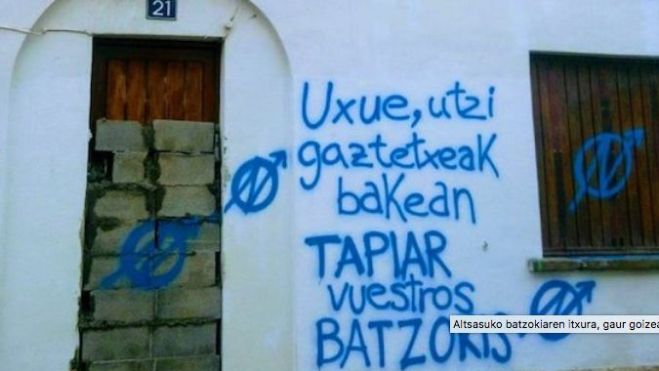 21
Uxue, utzi
gaztetxeak
bakean
TAPIAR
vuestros
BATZOKIS
Altsasuko batzokiaren itxura, gaur goizea